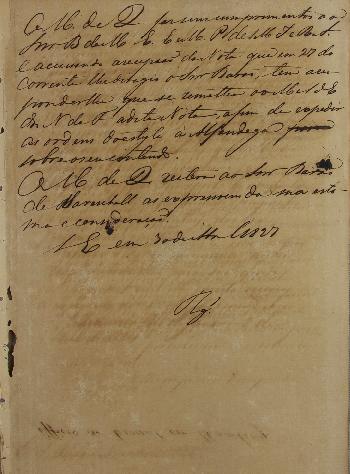 O M. de Q. faz seus cumprimentos ao
Snr B. de M. E. E. e M. P. de S. M. I. e R. A.
e accusando a recepção da Nota que em 27 do
corrente lhe dirigio o Snr Barão, tem a res
ponderlhe que se remetteo ao M. e S. E.
dos N. da F. a dita Nota, a fim de expedir
as ordens do estylo à Alfandega
sobre o seu contendo.
O M. de Q. reitera ao Snr Barão
de Mareschall as expressens da sua esti-
ma e consideração.
S. E. em 30 de 1827